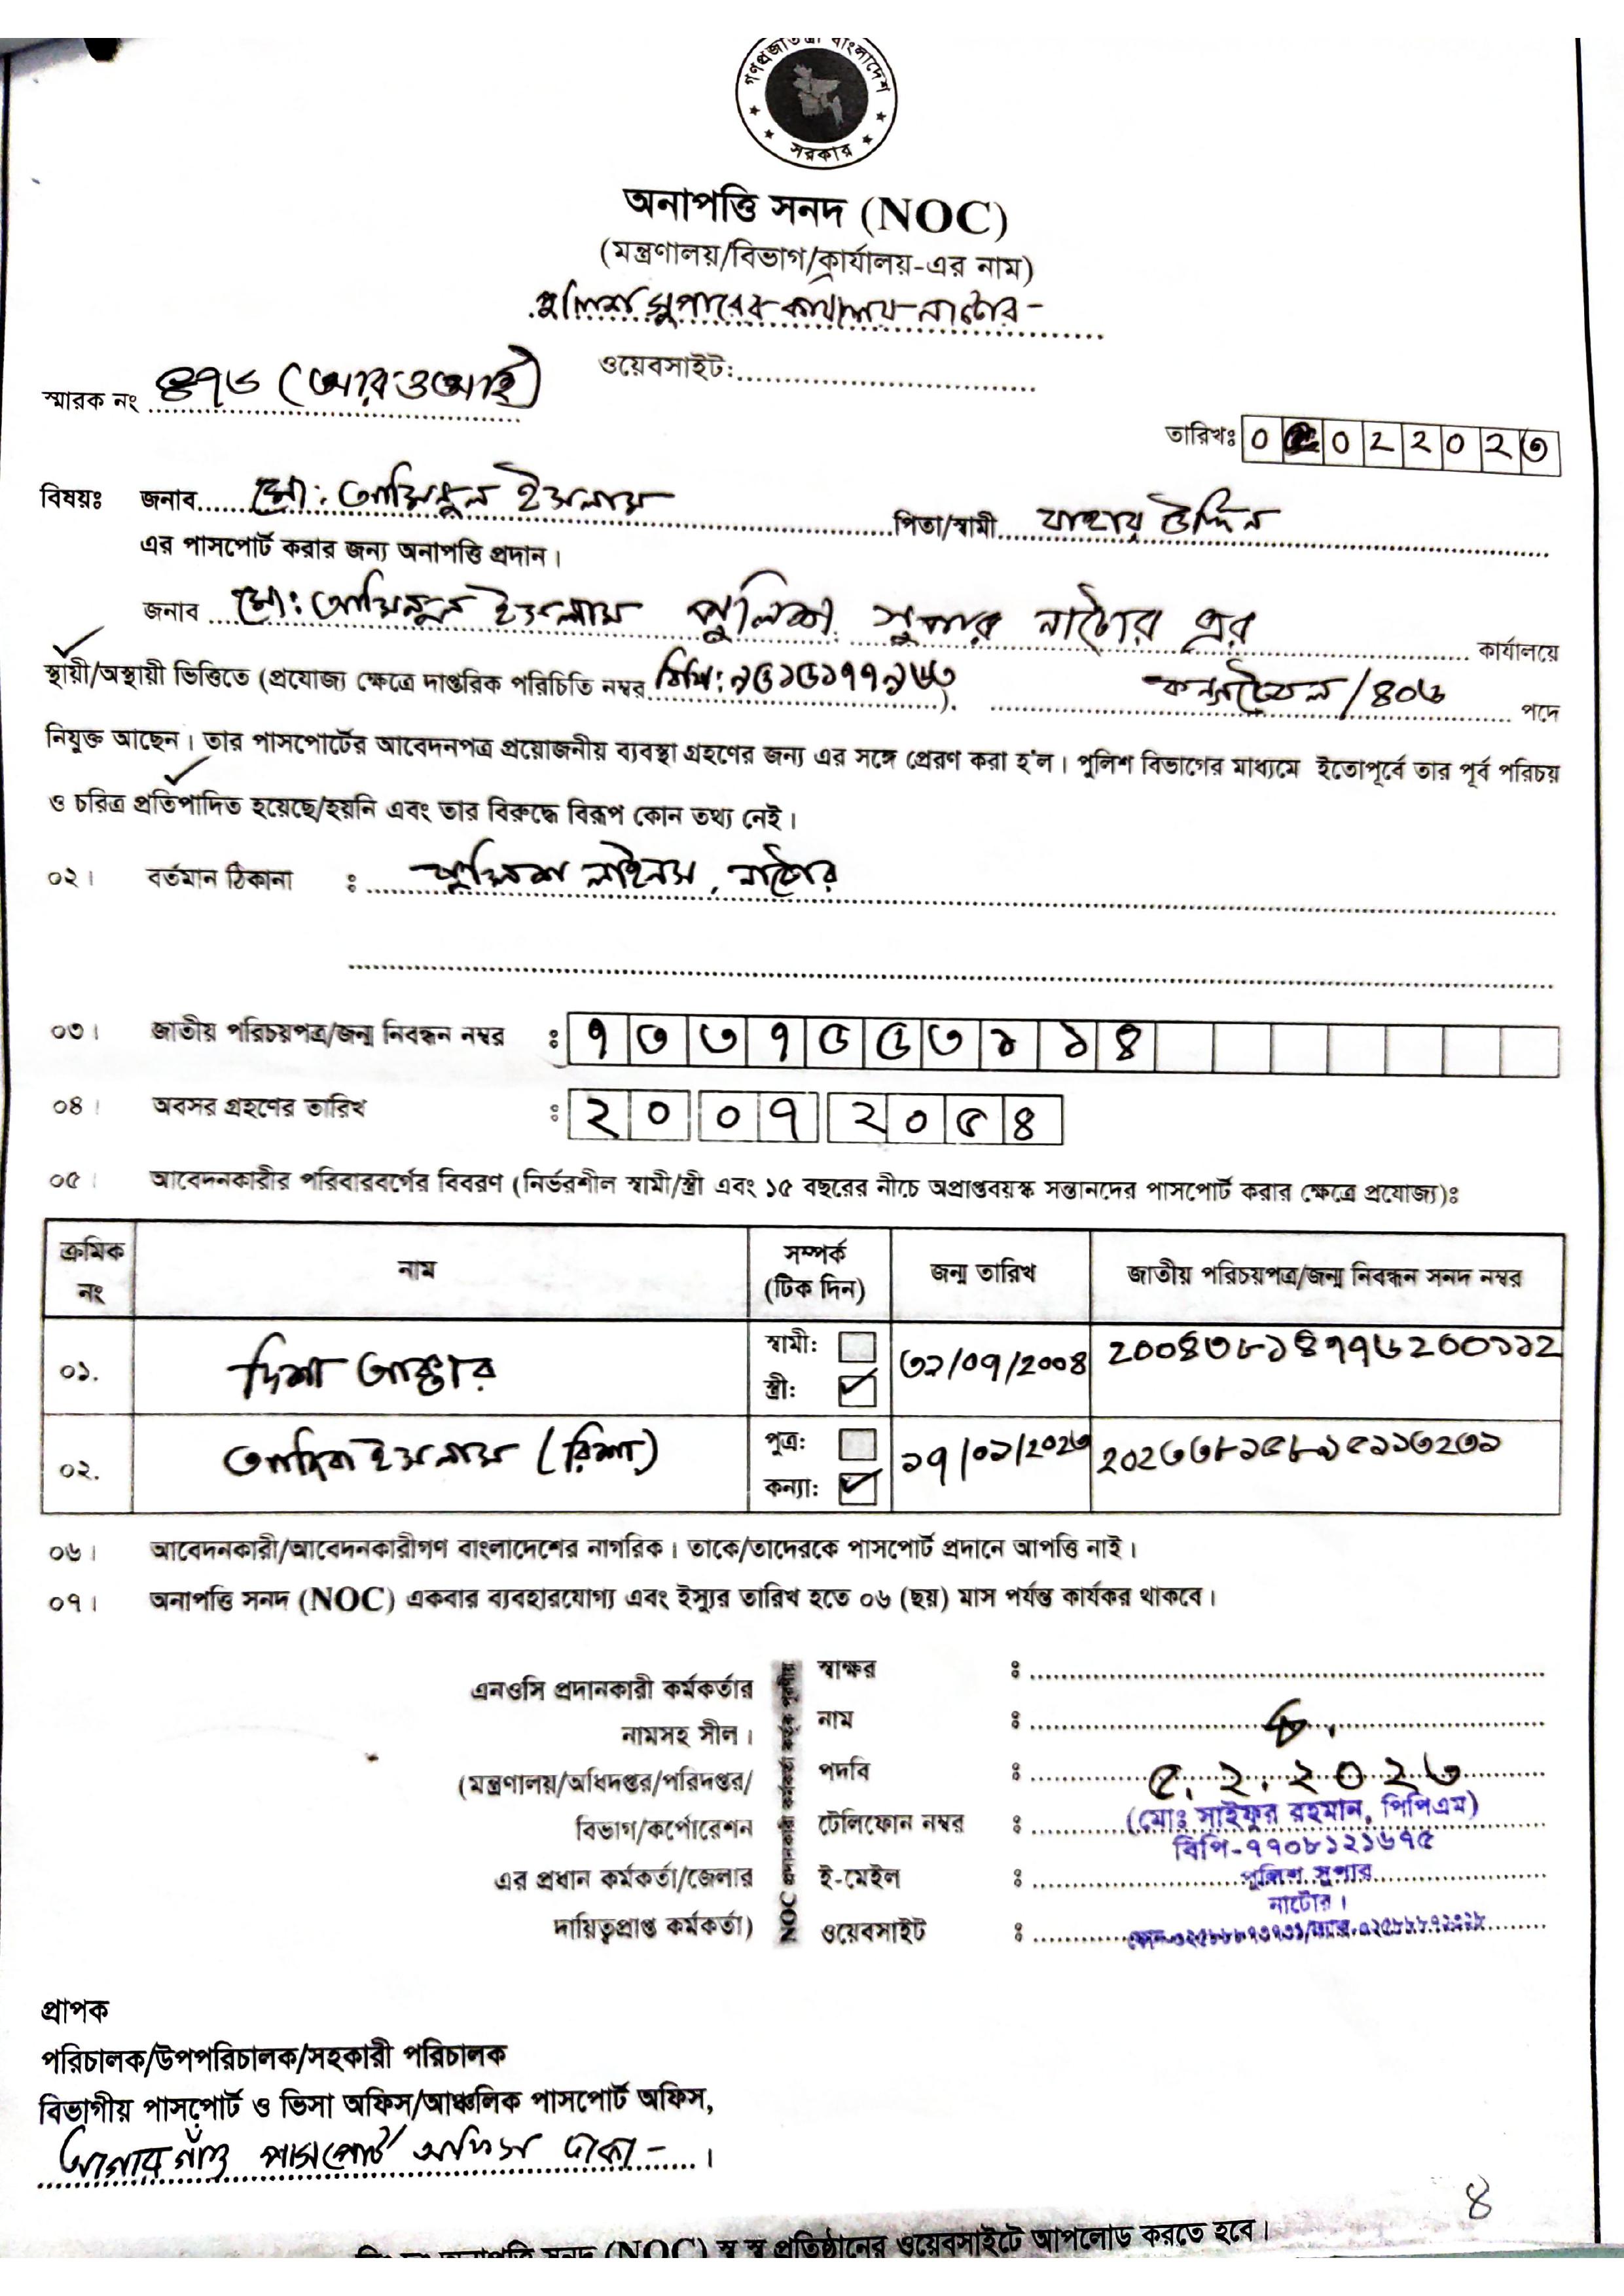 গণপ্রজাতন্ত্রী বাংলাদেশ
সরকার
অনাপত্তি সনদ (NOC)
(মন্ত্রণালয়/বিভাগ/কার্যালয়-এর নাম)
পুলিশ সুপারের কার্যালয় নাটোর
ওয়েবসাইট:
স্মারক নং ৪৭৬ (আরওআই)
তারিখঃ ০ ০২২০২৩
বিষয়ঃ জনাব মো: আমিনুল ইসলাম পিতা/স্বামী বাহার উদ্দিন
এর পাসপোর্ট করার জন্য অনাপত্তি প্রদান।
জনাব মো: আমিনুল ইসলাম পুলিশ সুপার নাটোর এর কার্যালয়ে
স্থায়ী/অস্থায়ী ভিত্তিতে (প্রযোজ্য ক্ষেত্রে দাপ্তরিক পরিচিতি নম্বর বিপি: ). কনস্টেবল/৪০৬ পদে
নিযুক্ত আছেন। তার পাসপোর্টের আবেদনপত্র প্রয়োজনীয় ব্যবস্থা গ্রহণের জন্য এর সঙ্গে প্রেরণ করা হ'ল। পুলিশ বিভাগের মাধ্যমে ইতোপূর্বে তার পূর্ব পরিচয়
ও চরিত্র প্রতিপাদিত হয়েছে/হয়নি এবং তার বিরুদ্ধে বিরূপ কোন তথ্য নেই।
০২। বর্তমান ঠিকানা : পুলিশ লাইনস, নাটোর
০৩। জাতীয় পরিচয়পত্র/জন্ম নিবন্ধন নম্বর ঃ ৭৩৩৭৫৫৩১১৪
০৪। অবসর গ্রহণের তারিখ ঃ ২০ ০৭ ২০৫৪
০৫। আবেদনকারীর পরিবারবর্গের বিবরণ (নির্ভরশীল স্বামী/স্ত্রী এবং ১৫ বছরের নীচে অপ্রাপ্তবয়স্ক সন্তানদের পাসপোর্ট করার ক্ষেত্রে প্রযোজ্য)ঃ
ক্রমিক নং নাম সম্পর্ক (টিক দিন) জন্ম তারিখ জাতীয় পরিচয়পত্র/জন্ম নিবন্ধন সনদ নম্বর
০১. দিশা আক্তার স্বামী: স্ত্রী: ৩১/০৭/২০০৪ ২০০৪৩৮১৪৭৭৬২০০১১২
০২. ইসলাম (রিশা) পুত্র: কন্যা: ১৭/০১/২০২৩ ২০২৩৩৮১৫৮১৫১১৩২৩১
০৬। আবেদনকারী/আবেদনকারীগণ বাংলাদেশের নাগরিক। তাকে/তাদেরকে পাসপোর্ট প্রদানে আপত্তি নাই।
০৭। অনাপত্তি সনদ (NOC) একবার ব্যবহারযোগ্য এবং ইস্যুর তারিখ হতে ০৬ (ছয়) মাস পর্যন্ত কার্যকর থাকবে।
এনওসি প্রদানকারী কর্মকর্তার
নামসহ সীল।
(মন্ত্রণালয়/অধিদপ্তর/পরিদপ্তর/
বিভাগ/কর্পোরেশন
এর প্রধান কর্মকর্তা/জেলার
দায়িত্বপ্রাপ্ত কর্মকর্তা)
NOC প্রদানকারী কর্মকর্তা কর্তৃক পূরণীয়
স্বাক্ষর ঃ
নাম ঃ
পদবি ঃ ৫.২.২০২৩
টেলিফোন নম্বর ঃ (মোঃ সাইফুর রহমান, পিপিএম)
বিপি-৭৭০৮১২১৬৭৫
ই-মেইল ঃ পুলিশ সুপার
নাটোর।
ওয়েবসাইট ঃ
প্রাপক
পরিচালক/উপপরিচালক/সহকারী পরিচালক
বিভাগীয় পাসপোর্ট ও ভিসা অফিস/আঞ্চলিক পাসপোর্ট অফিস,
আগারগাঁও পাসপোর্ট অফিস ঢাকা ।
৪
অনাপত্তি সনদ (NOC) স্ব স্ব প্রতিষ্ঠানের ওয়েবসাইটে আপলোড করতে হবে।